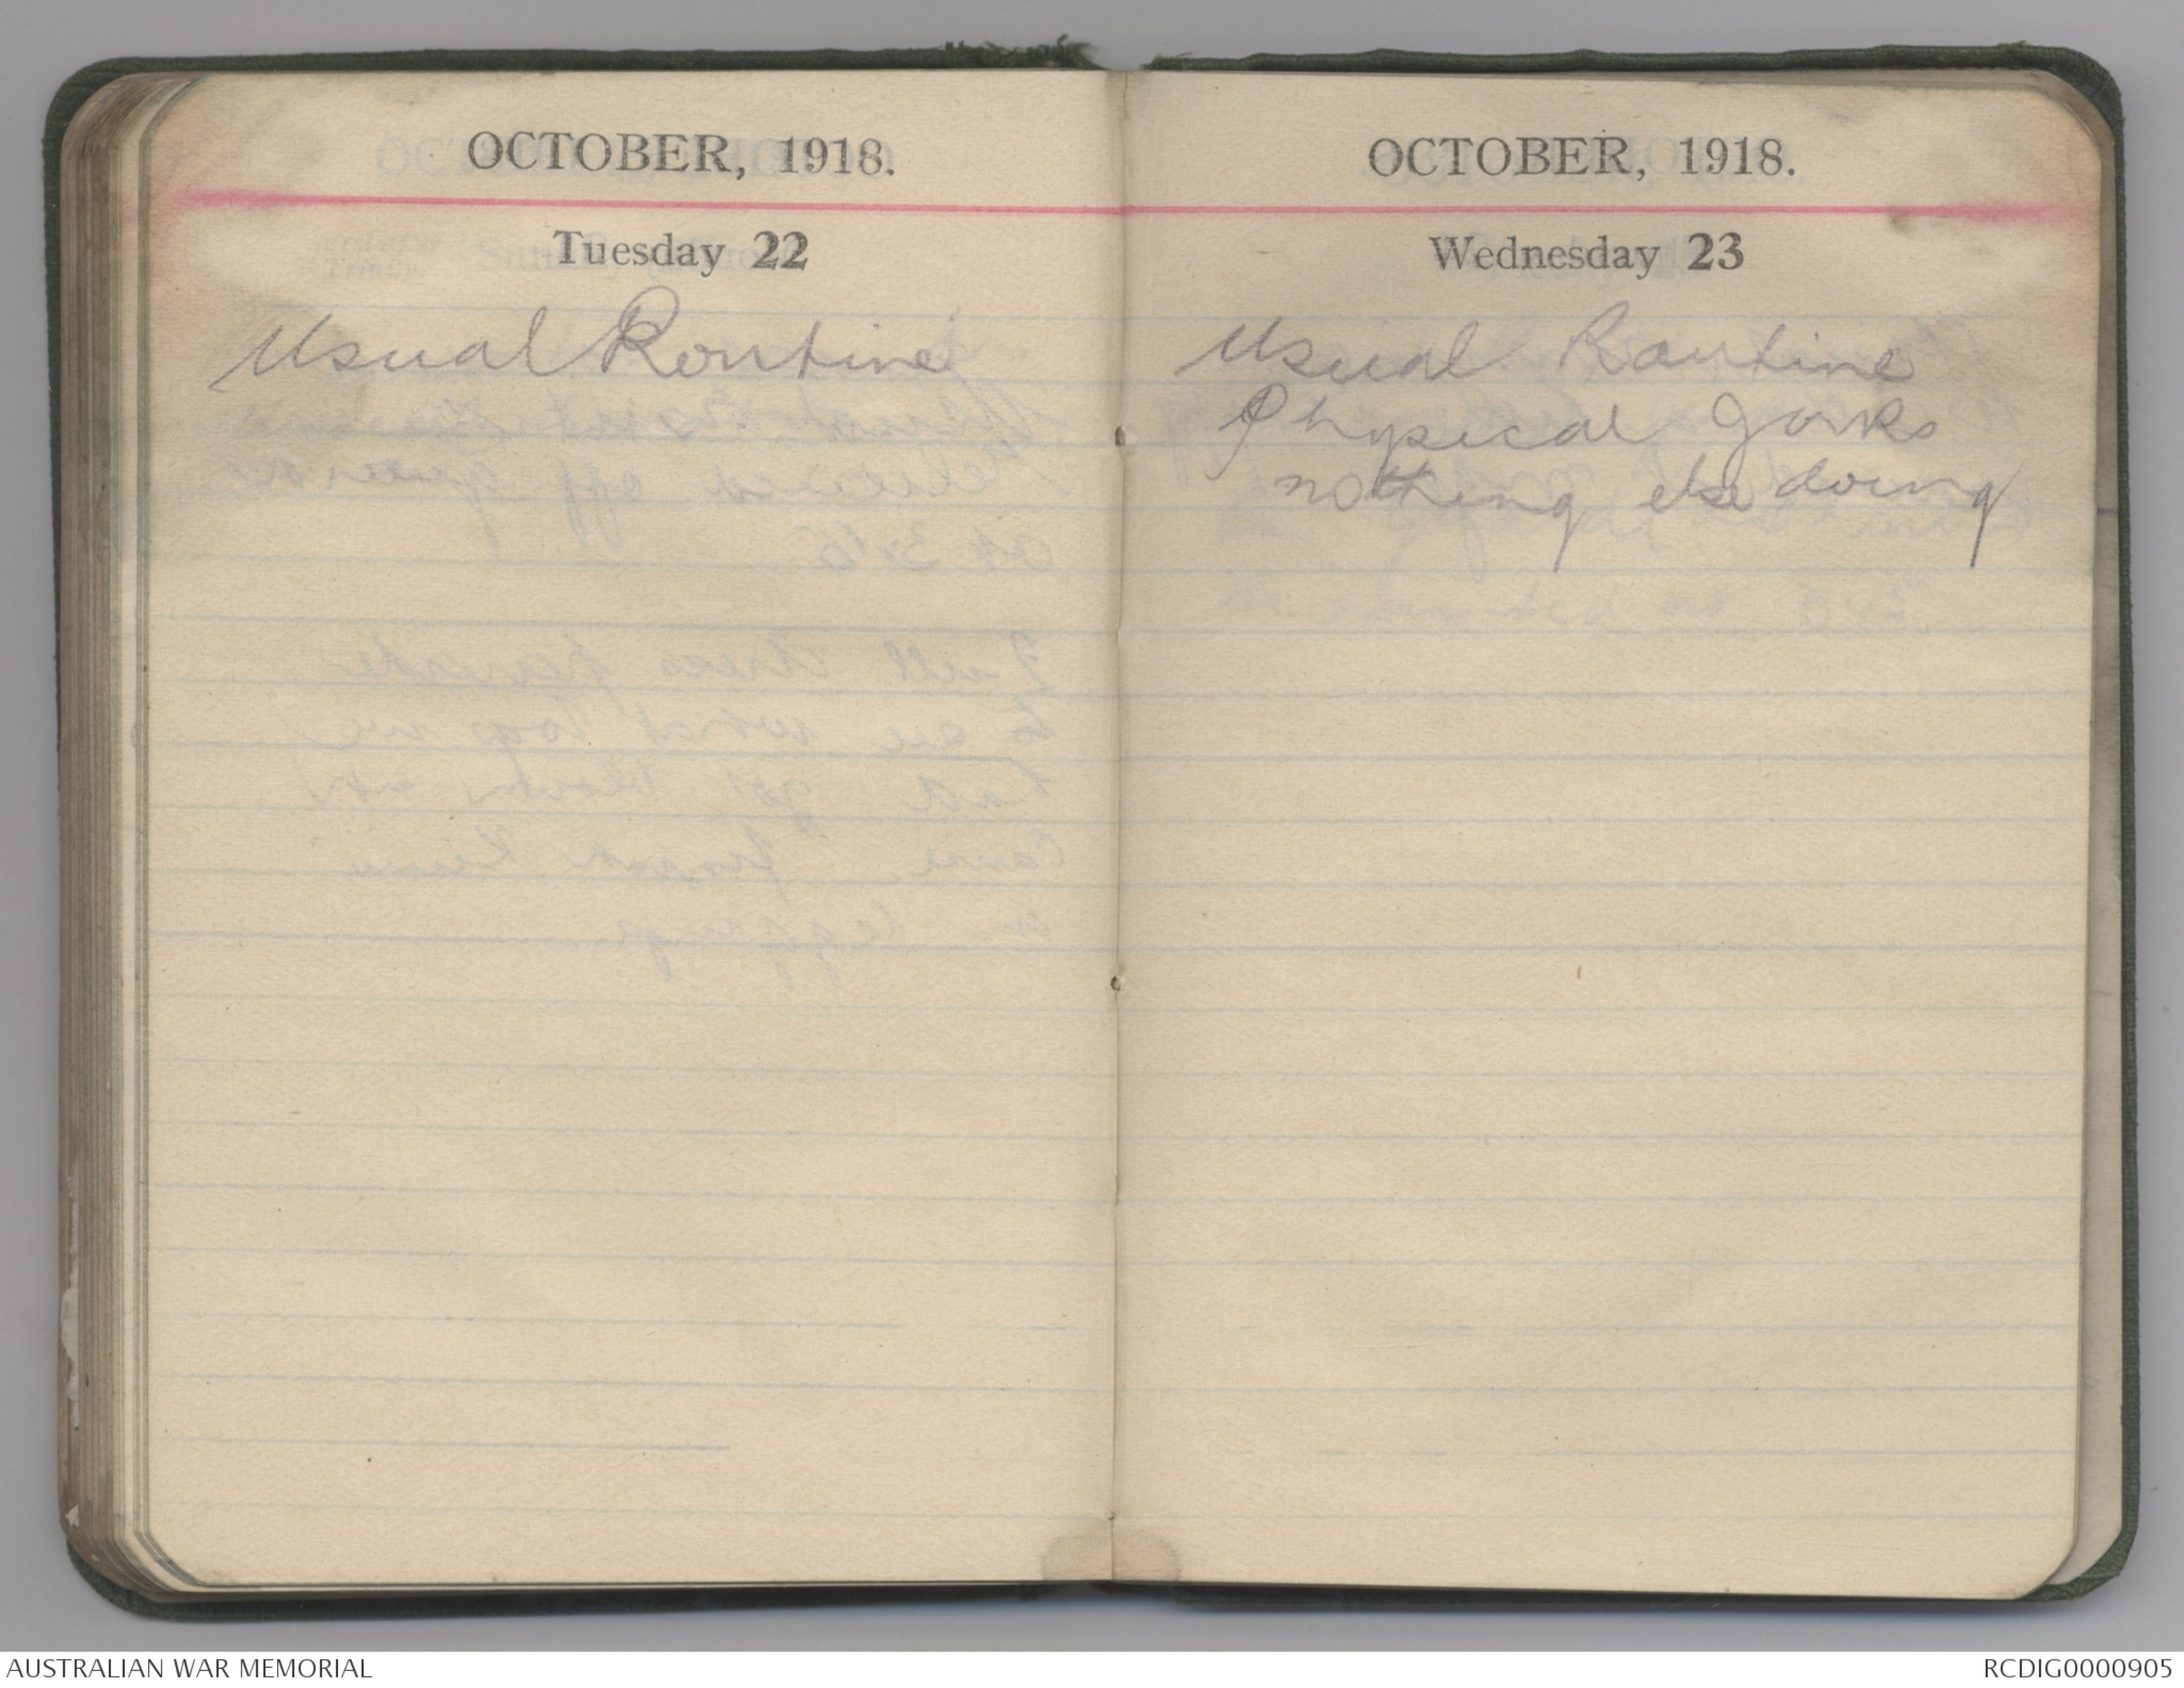 OCTOBER, 1918.
Tuesday 22
Usual Routine
OCTOBER, 1918.
Wednesday 23
Usual Routine
Physical Jorks
nothing else doing
AUSTRALIAN WAR MEMORIAL
RCDIG0000905